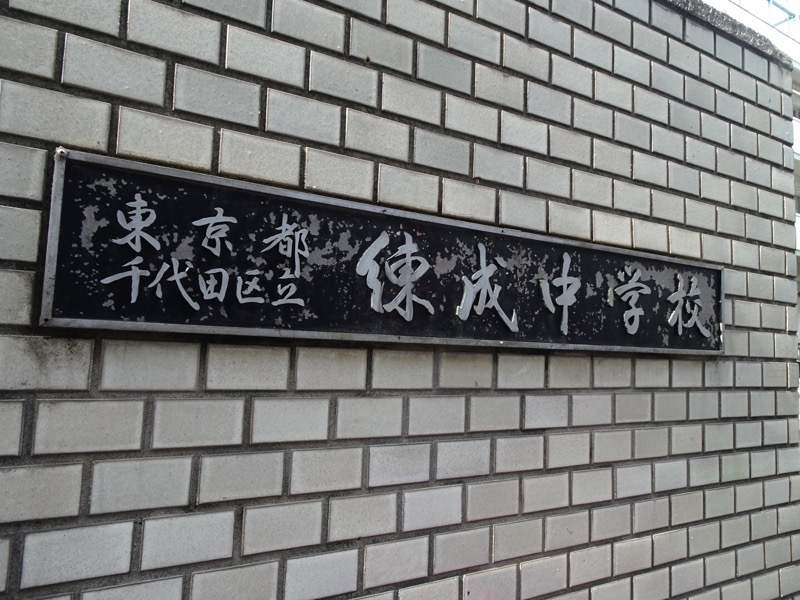 東京都
千代田区立
練成中学校